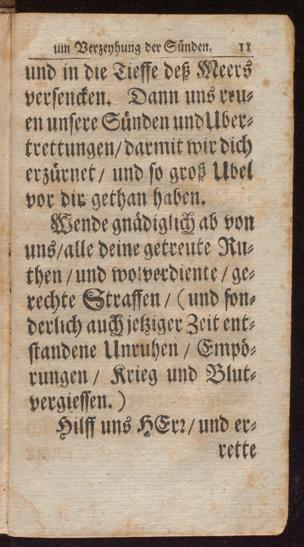 um Verzeyhung der Sünden. 11
und in die Tieffe deß Meers
versencken. Dann uns reu-
en unsere Sünden und Uber-
trettungen/ darmit wir dich
erzürnet/ und so groß Ubel
vor dir gethan haben.
Wende gnädiglich ab von
uns/ alle deine getreute Ru-
then/ und wolverdiente/ ge-
rechte Straffen/ (und son-
derlich auch jetziger Zeit ent-
standene Unruhen/ Empö-
rungen/ Krieg und Blut-
vergiessen.)
Hilff uns HErr/ und er-
rette